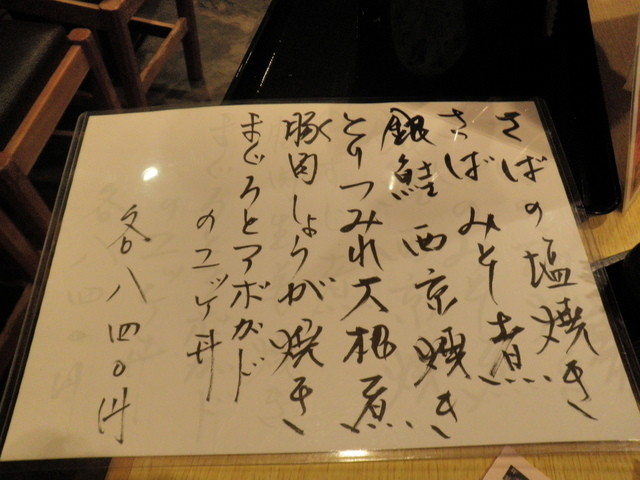 さばの塩焼き
さばみそ煮
銀鮭西京焼き
とりつみれ大根煮
豚肉しょうが焼き
まぐろとアボガド
のユッケ丼
各八四〇円